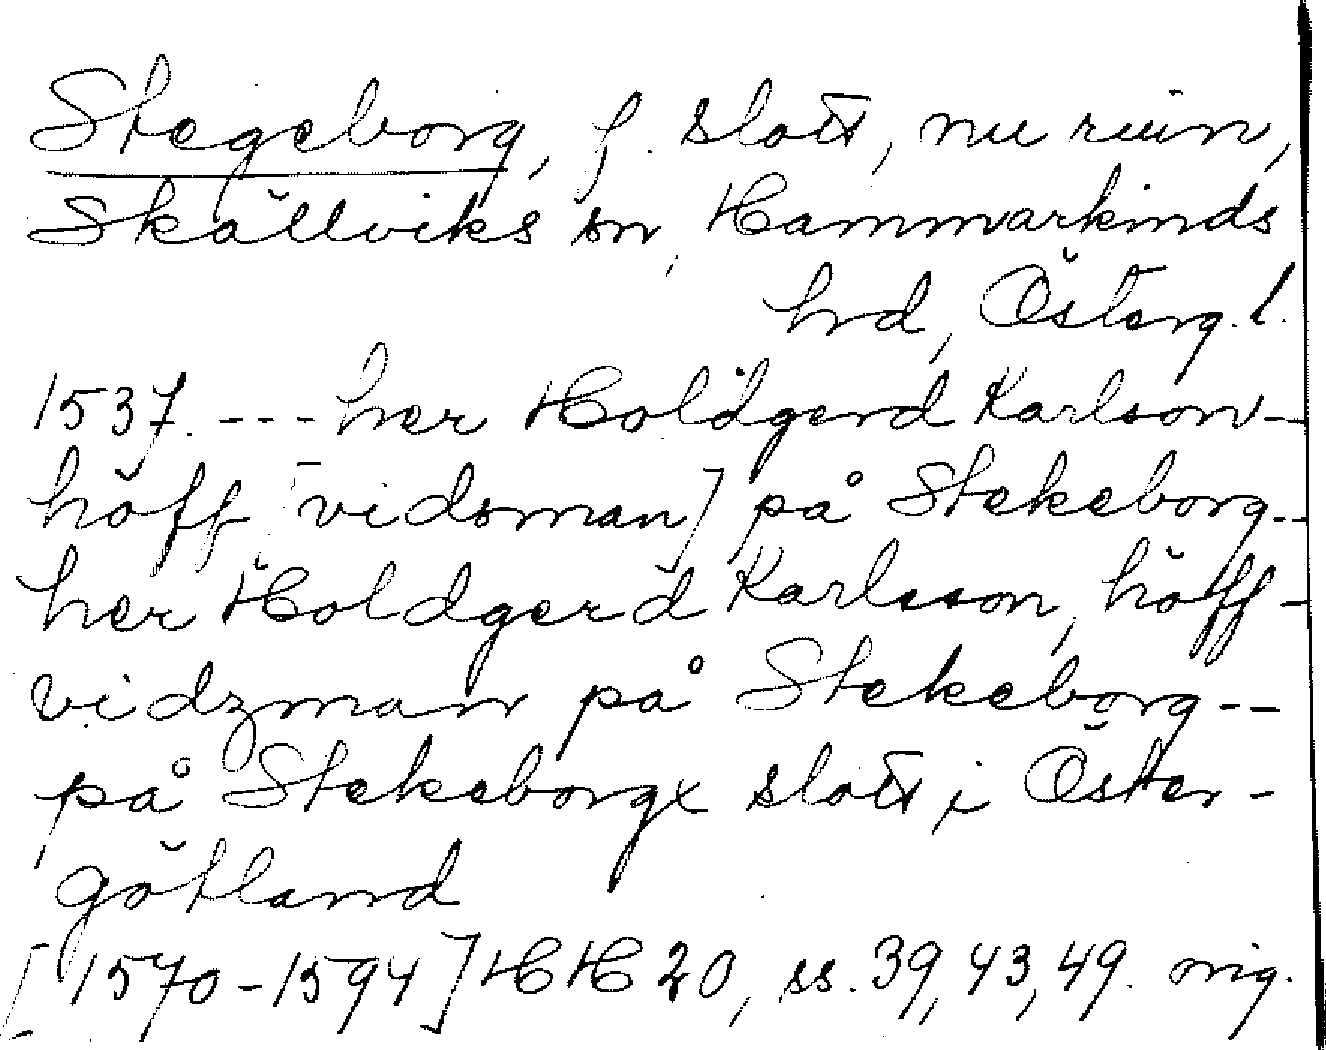 Stegeborg, f. slott, nu ruin,
Skällviks sn, Hammarkinds
hrd, Österg.l.
1537. --- her Holdgerd Karlson --
höff [vidsman] på Stekeborg --
her Holdgerd Karlsson, höff-
vidzman på Stekeborg --
på Stekeborgx slott i Öster-
götland
[1570-1594] HH 20, ss. 39, 43, 49. orig.